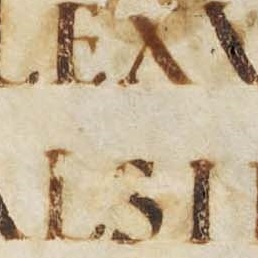 LEXV
ALSII